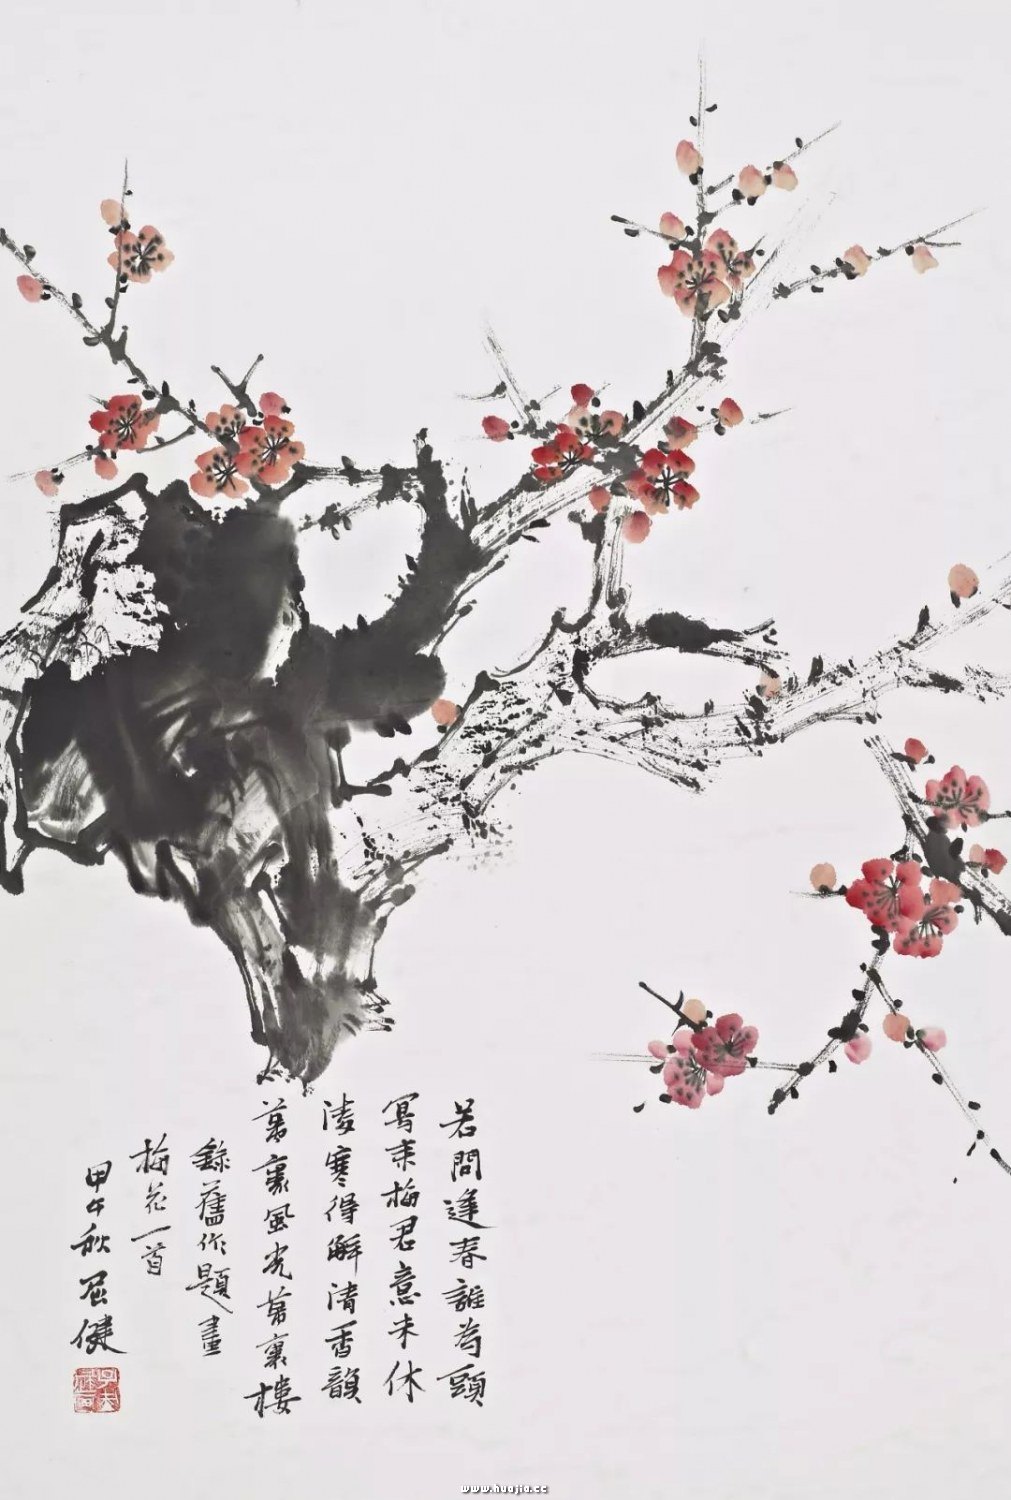 若問逢春誰為頭
寫來梅君意未休
凌寒得解清香韻
夢裏風光夢裏樓
錄舊作題畫
梅花一首
甲午秋 屈健
www.huajia.cc